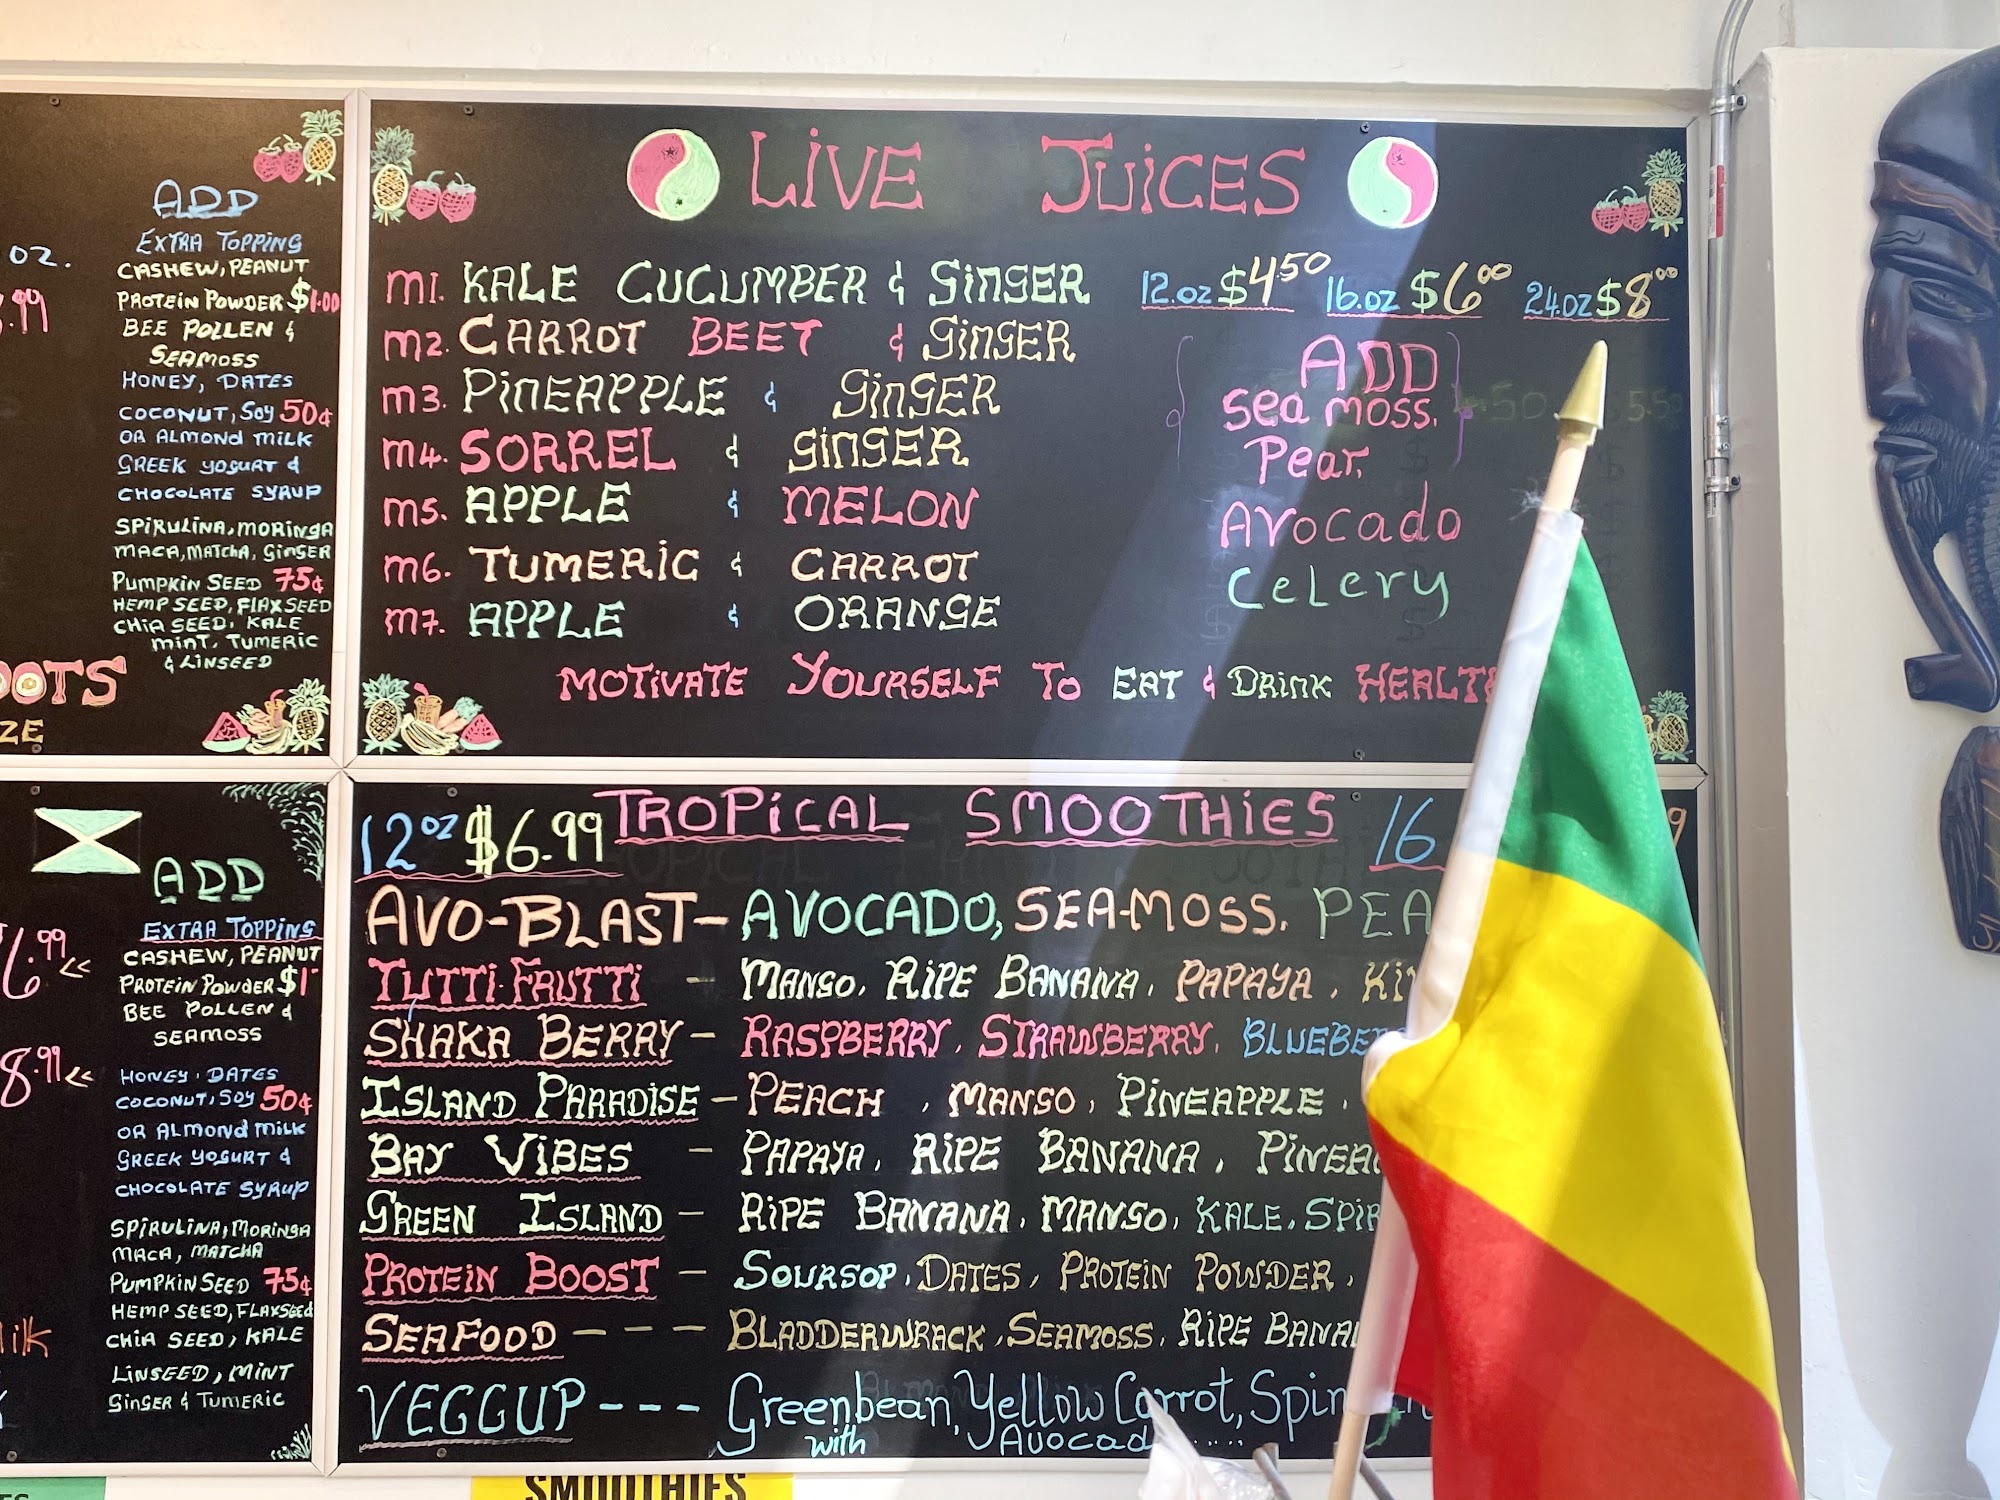 OZ.
ADD
EXTRA TOPPING
CASHEW, PEANUT
PROTEIN POWDER $1.00
BEE POLLEN &
SEAMOSS
HONEY, DATES
COCONUT, SOY 50¢
OR ALMOND MILK
GREEK YOGURT &
CHOCOLATE SYRUP
SPIRULINA, MORINGA
MACA, MATCHA, GINGER
PUMPKIN SEED 75¢
HEMP SEED, FLAXSEED
CHIA SEED, KALE
MINT, TUMERIC
& LINSEED
OOTS
ZE
LIVE JUICES
M1. KALE CUCUMBER & GINGER 12.OZ $4.50 16.OZ $6.00 24.OZ $8.00
M2. CARROT BEET & GINGER
M3. PINEAPPLE & GINGER
M4. SORREL & GINGER
M5. APPLE & MELON
M6. TUMERIC & CARROT
M7. APPLE & ORANGE
ADD
Sea moss.
Pear.
Avocado
Celery
MOTIVATE YOURSELF TO EAT & DRINK HEALT
ADD
6.99 <<
8.99 <<
EXTRA TOPPING
CASHEW, PEANUT
PROTEIN POWDER $1
BEE POLLEN &
SEAMOSS
HONEY, DATES
COCONUT, SOY 50¢
OR ALMOND MILK
GREEK YOGURT &
CHOCOLATE SYRUP
SPIRULINA, MORINGA
MACA, MATCHA
PUMPKIN SEED 75¢
HEMP SEED, FLAXSEED
CHIA SEED, KALE
LINSEED, MINT
GINGER & TUMERIC
12 OZ $6.99 TROPICAL SMOOTHIES 16
AVO-BLAST – AVOCADO, SEA-MOSS. PEA
TUTTI-FRUTTI – MANGO, RIPE BANANA, PAPAYA, KI
SHAKA BERRY – RASPBERRY, STRAWBERRY, BLUEBE
ISLAND PARADISE – PEACH, MANGO, PINEAPPLE,
BAY VIBES – PAPAYA, RIPE BANANA, PINEA
GREEN ISLAND – RIPE BANANA, MANGO, KALE, SPIR
PROTEIN BOOST – SOURSOP, DATES, PROTEIN POWDER,
SEAFOOD – – – BLADDERWRACK, SEAMOSS, RIPE BANA
VEGGUP – – – Greenbean, Yellow Carrot, Spin
with Avocad
SMOOTHIES